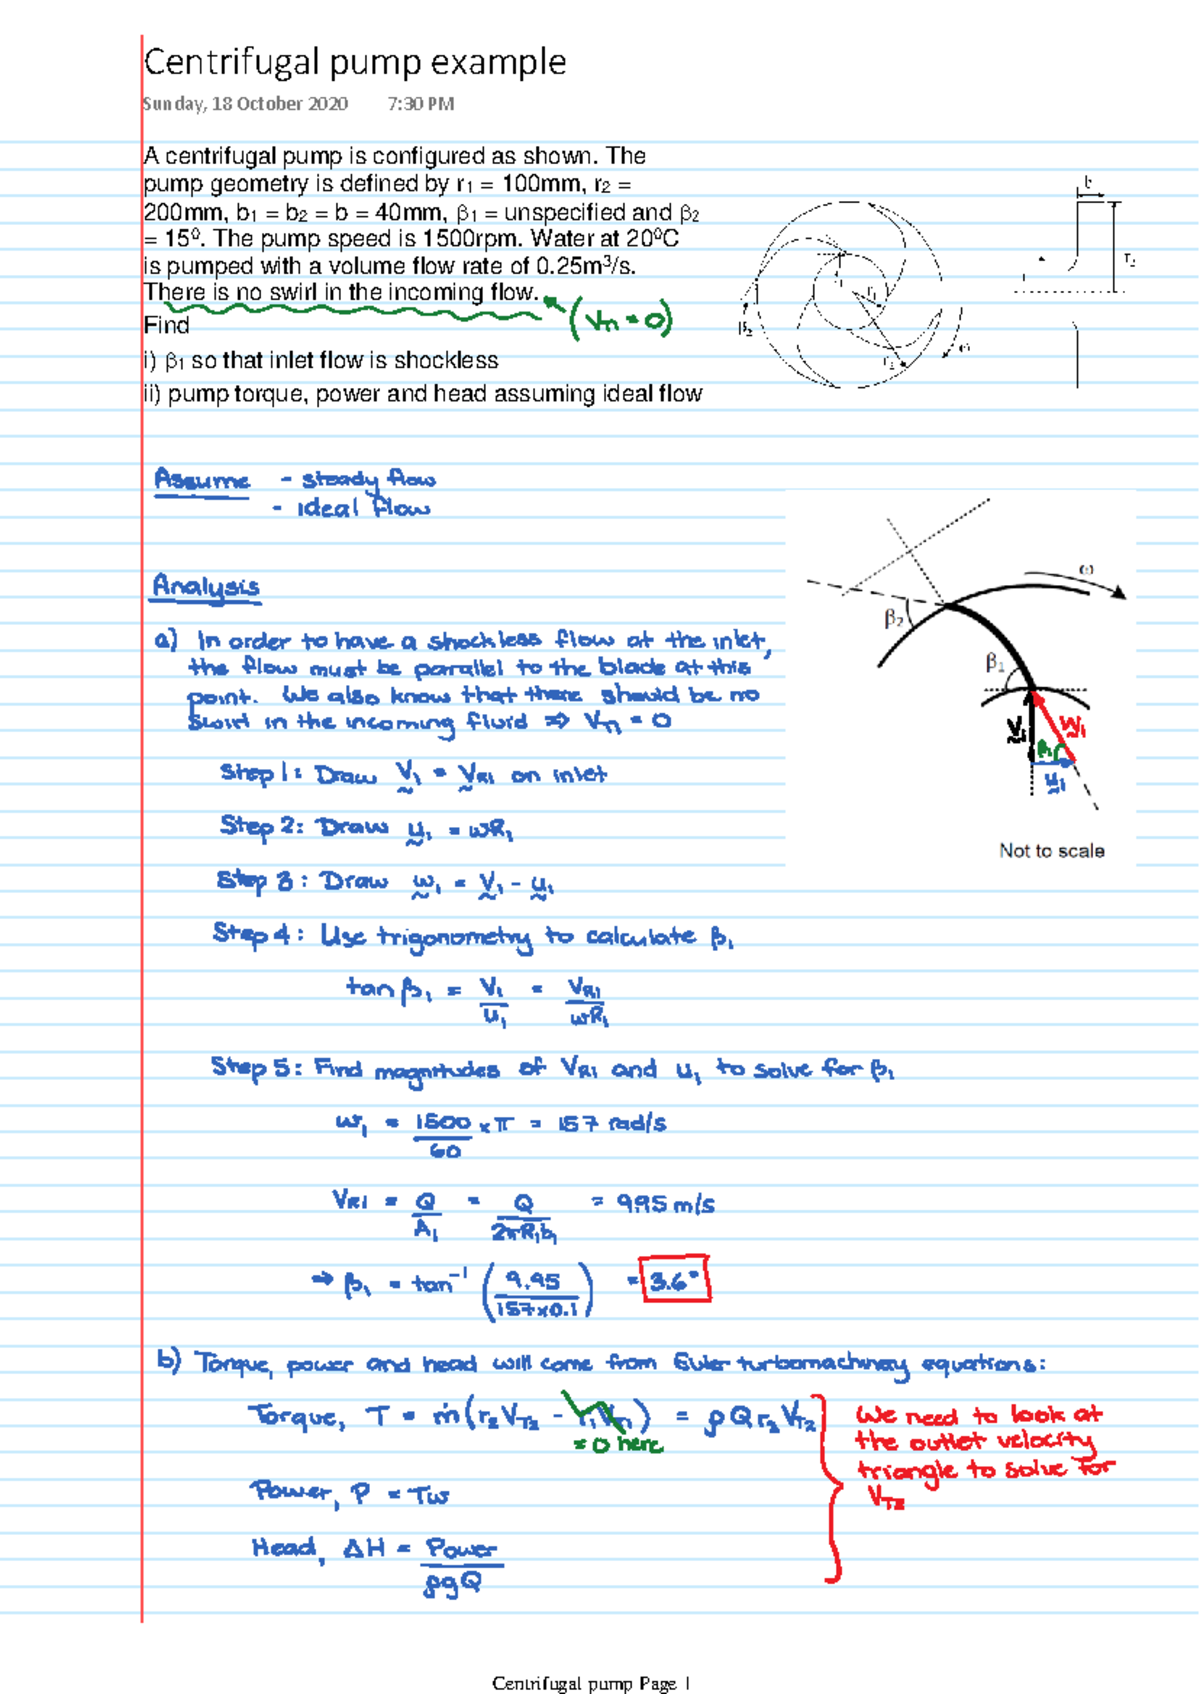 Centrifugal pump example
Sunday, 18 October 2020 7:30 PM
A centrifugal pump is configured as shown. The
pump geometry is defined by r₁ = 100mm, r₂ =
200mm, b₁ = b₂ = b = 40mm, β₁ = unspecified and β₂
= 15⁰. The pump speed is 1500rpm. Water at 20⁰C
is pumped with a volume flow rate of 0.25m³/s.
There is no swirl in the incoming flow.
(V_T1 = 0)
Find
i) β₁ so that inlet flow is shockless
ii) pump torque, power and head assuming ideal flow
b
r₂
r₁
β₂
r₂
ω
Assume - steady flow
- ideal flow
Analysis
a) In order to have a shockless flow at the inlet,
the flow must be parallel to the blade at this
point. We also know that there should be no
swirl in the incoming fluid ⇒ V_T1 = 0
ω
β₂
β₁
V₁
W₁
β₁
u₁
Not to scale
Step 1: Draw V₁ = V_R1 on inlet
Step 2: Draw u₁ = ωR₁
Step 3: Draw w₁ = V₁ - u₁
Step 4: Use trigonometry to calculate β₁
tan β₁ = V₁/u₁ = V_R1/ωR₁
Step 5: Find magnitudes of V_R1 and u₁ to solve for β₁
ω₁ = 1500/60 × π = 157 rad/s
V_R1 = Q/A₁ = Q/2πR₁b₁ = 9.95 m/s
⇒ β₁ = tan⁻¹ (9.95/157×0.1) = 3.6°
b) Torque, power and head will come from Euler turbomachinery equations:
Torque, T = ṁ(r₂V_T2 - r₁V_T1) = ρQr₂V_T2
= 0 here
We need to look at
the outlet velocity
triangle to solve for
V_T2
Power, P = Tω
Head, ΔH = Power/ρgQ
Centrifugal pump Page 1